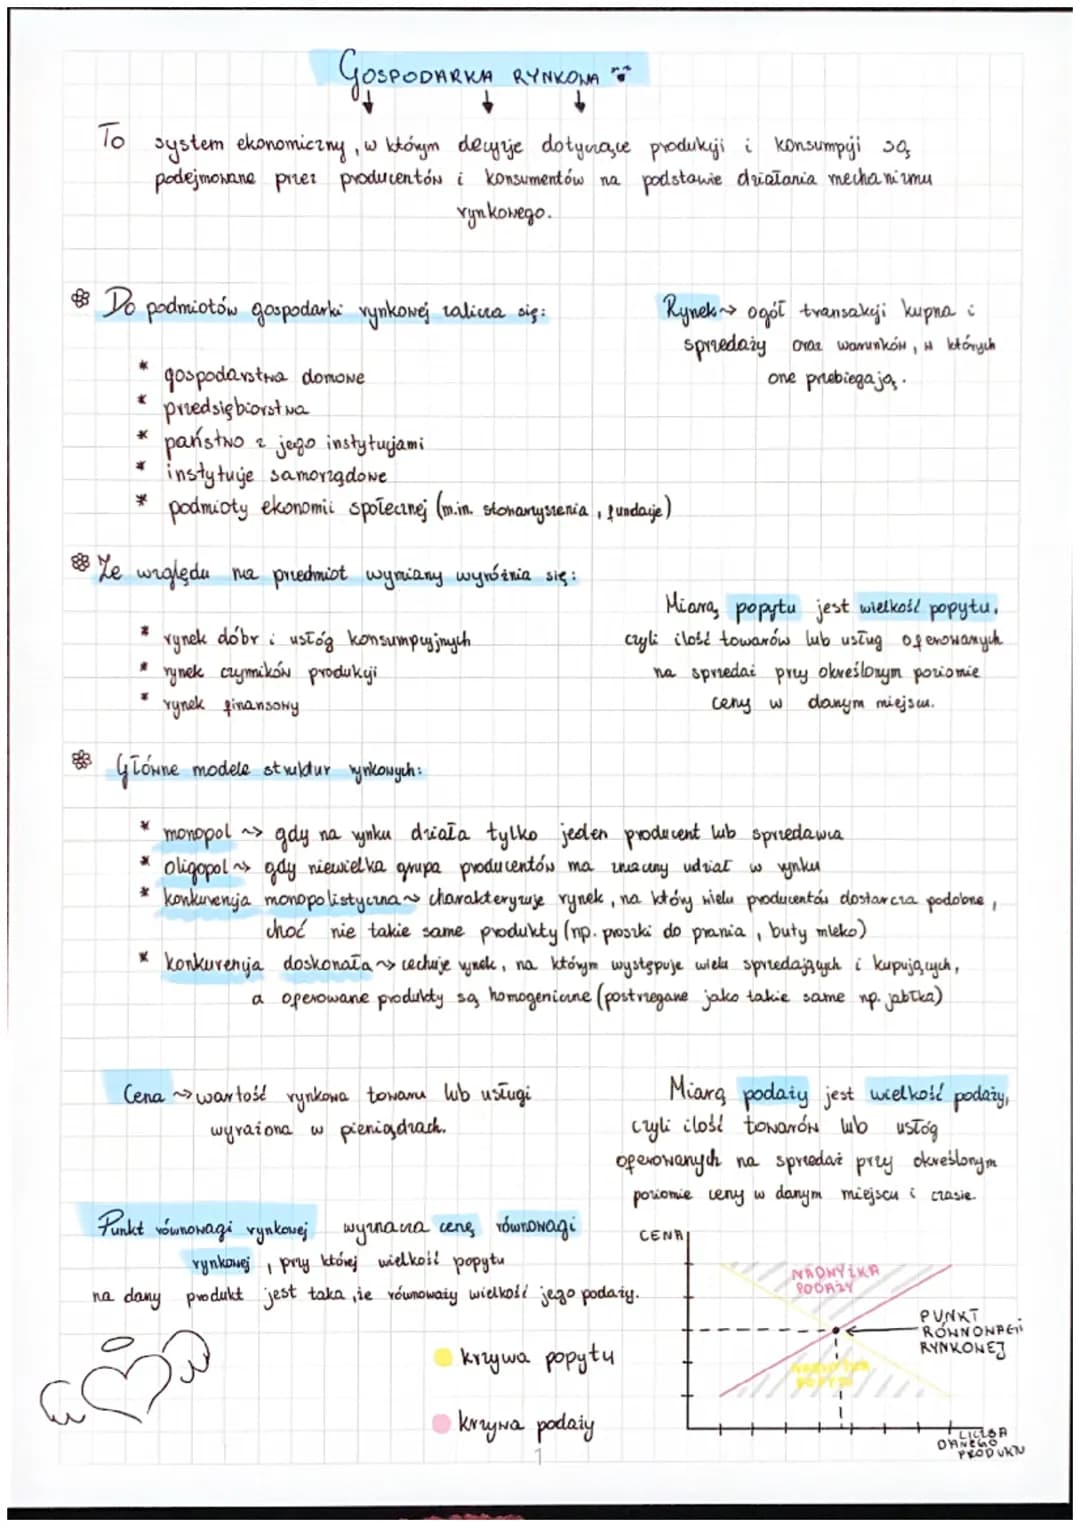 GOSPODARKA RYNKOWA
To system ekonomiczny, w którym decyzje dotyczące produkcji i konsumpcji są
podejmowane przez producentów i konsumentów na podstawie działania mechanizmu
rynkowego.
Do podmiotów gospodarki rynkowej zalicza się:
* gospodarstwa domowe
* przedsiębiorstwa
* państwo z jego instytucjami
* instytucje samorządowe
* podmioty ekonomii społecznej (m.in. stowarzyszenia, fundacje)
Rynek ~> ogół transakcji kupna i
sprzedaży oraz warunków, w których
one przebiegają.
Ze względu na przedmiot wymiany wyróżnia się:
* rynek dóbr i ustóg konsumpcyjnych
* rynek czynników produkcji
* rynek finansowy
Miarą popytu jest wielkość popytu,
czyli ilość towarów lub usług oferowanych
na sprzedaż przy określonym poziomie
ceny w danym miejscu.
Główne modele struktur rynkowych:
* monopol ~> gdy na rynku działa tylko jeden producent lub sprzedawca
* oligopol ~> gdy niewielka grupa producentów ma znaczny udział w rynku
* konkurencja monopolistyczna ~> charakteryzuje rynek, na który wielu producentów dostarcza podobne,
choć nie takie same produkty (np. proszki do prania, buty mleko)
* konkurencja doskonała ~> cechuje rynek, na którym występuje wielu sprzedających i kupujących,
a oferowane produkty są homogeniczne (postrzegane jako takie same np. jabłka)
Cena ~> wartość rynkowa towaru lub usługi
wyrażona w pieniądzach.
Miarą podaży jest wielkość podaży,
czyli ilość towarów lub ustóg
oferowanych na sprzedaż przy określonym
poziomie ceny w danym miejscu i czasie.
Punkt równowagi rynkowej wyznacza cenę równowagi
rynkowej, przy której wielkość popytu
na dany produkt jest taka, że równoważy wielkość jego podaży.
krzywa popytu
krzywa podaży
CENA
NADWYŻKA
PODAŻY
PUNKT
RÓWNOWAGI
RYNKOWEJ
LICZBA
DANEGO
PRODUKTU
1